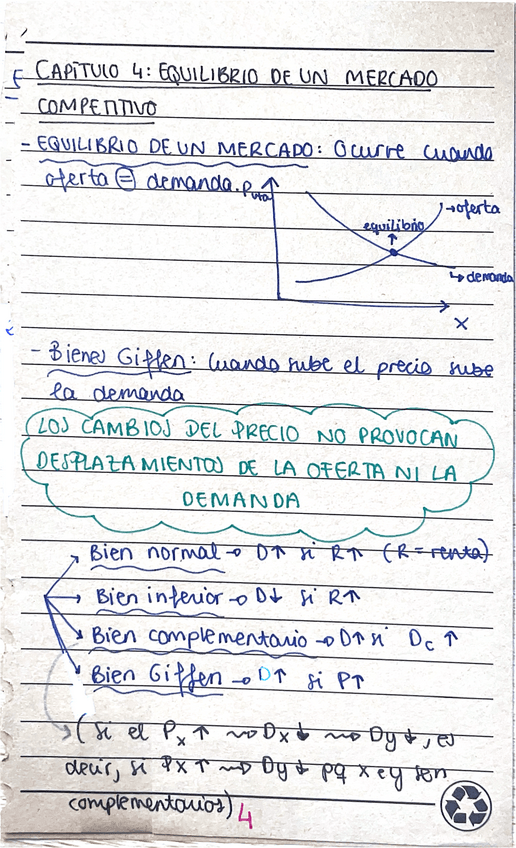 CAPÍTULO 4: EQUILIBRIO DE UN MERCADO
COMPETITIVO
- EQUILIBRIO DE UN MERCADO: Ocurre cuando
oferta = demanda.
equilibrio
↑
→oferta
↳ demanda
X
- Bienes Giffen: Cuando sube el precio sube
la demanda
LOS CAMBIOS DEL PRECIO NO PROVOCAN
DESPLAZAMIENTOS DE LA OFERTA NI LA
DEMANDA
Bien normal → D↑ si R↑ (R = renta)
Bien inferior → D↓ si R↑
Bien complementario → D↑ si Dc ↑
Bien Giffen → D↑ si P↑
(Si el Px ↑ ⇝ Dx ↓ ⇝ Dy ↓, es
decir, si Px ↑ ⇝ Dy ↓ pq x e y son
complementarios)
4